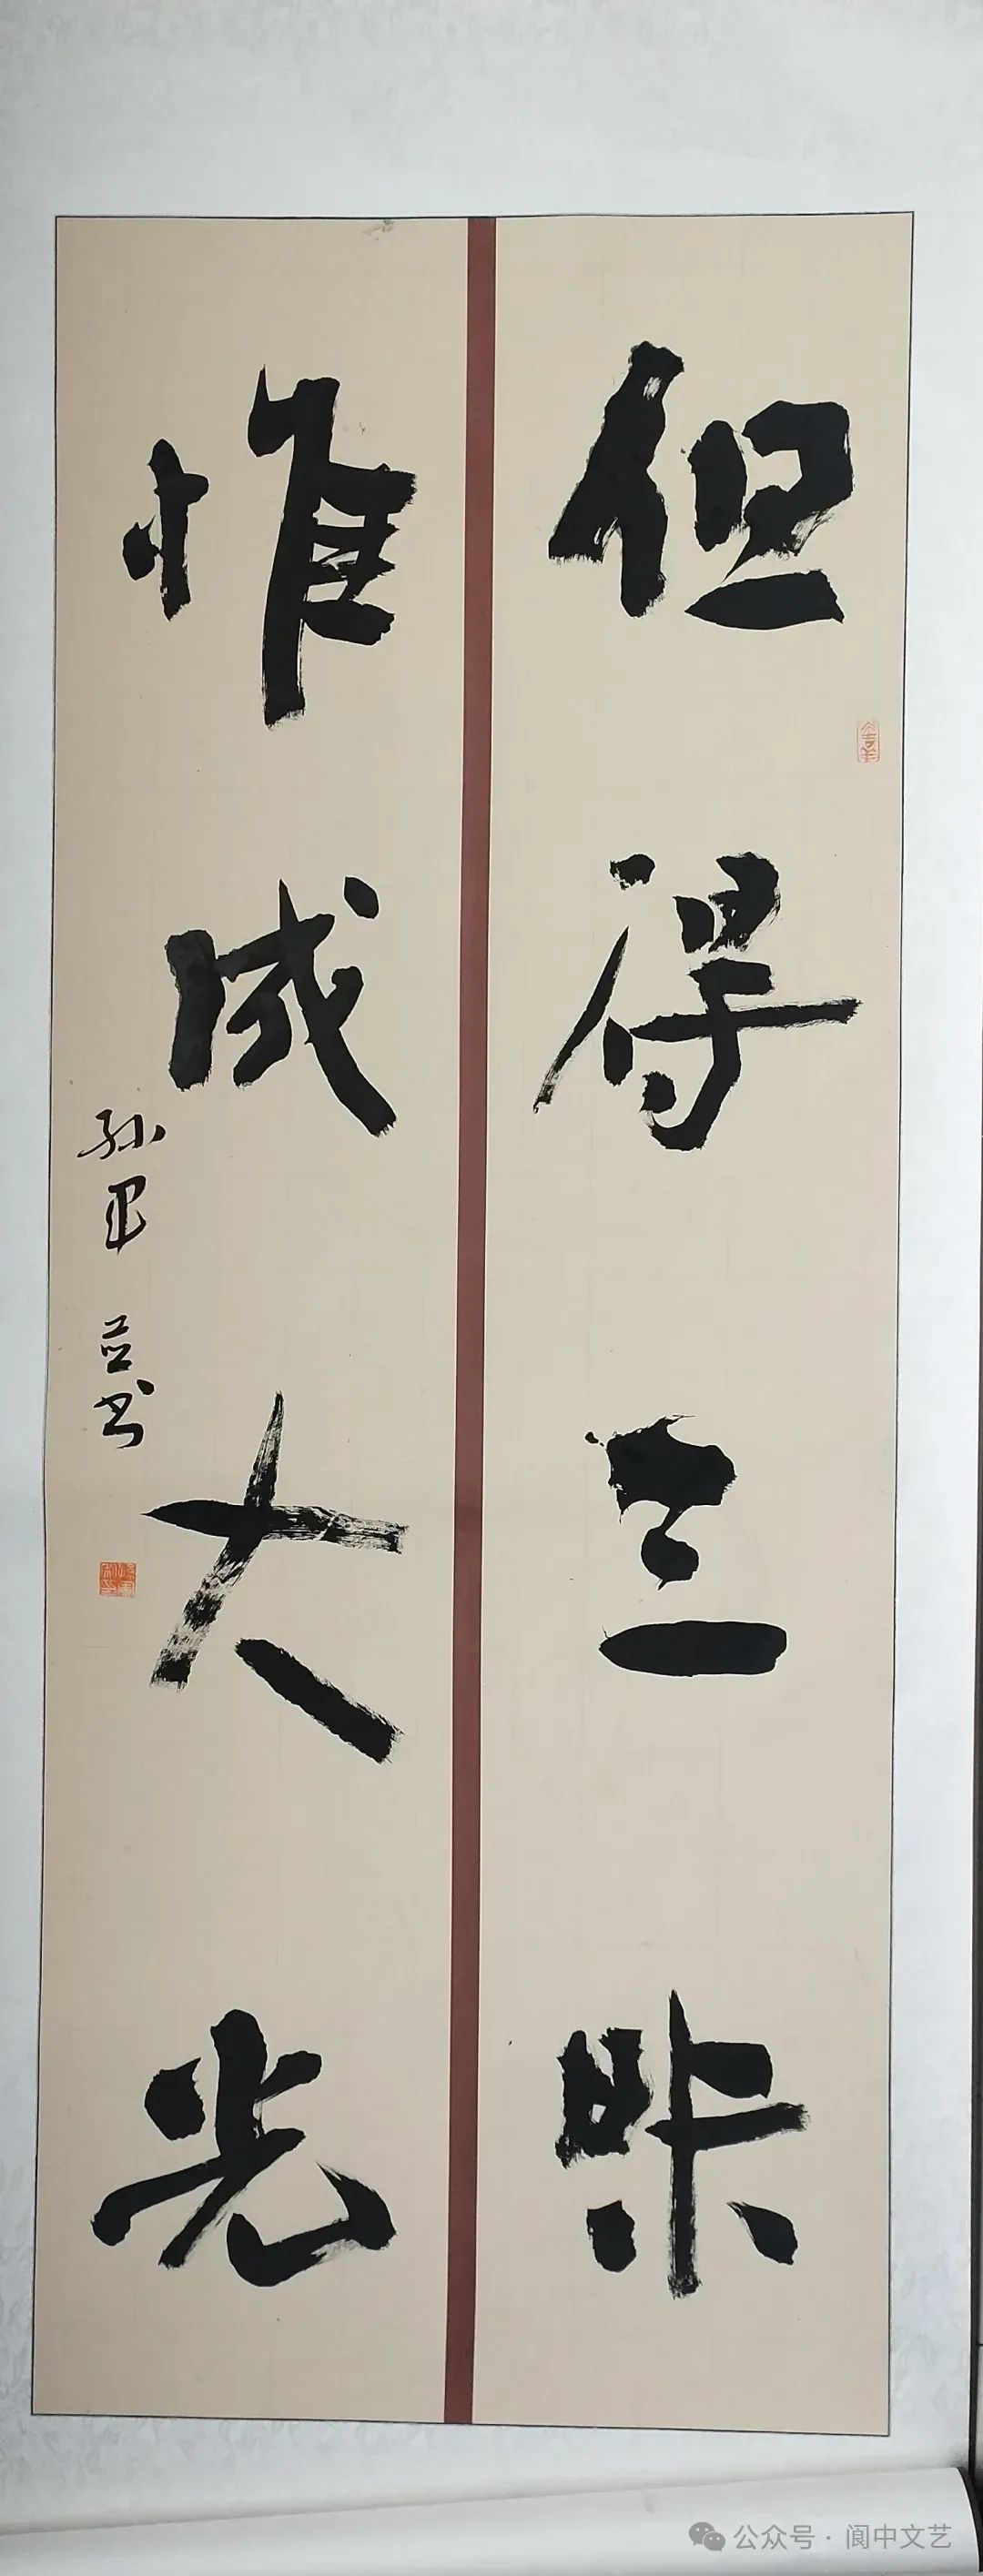 但得三昧
惟成大光
孙军 并书
公众号·阆中文艺